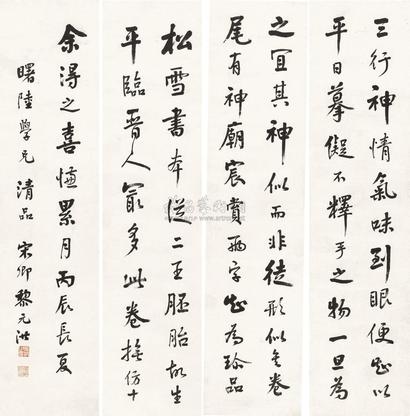 三行神情氣味到眼便知以
平日摹儗不釋手之物一旦為
之宜其神似而非徒形似矣卷
尾有神廟宸賞兩字知為珍品
松雪書本從二王胚胎故生
平臨晉人最多此卷橅仿十
余得之喜慰累月丙辰長夏
曙陸學兄清品 宋卿黎元洪